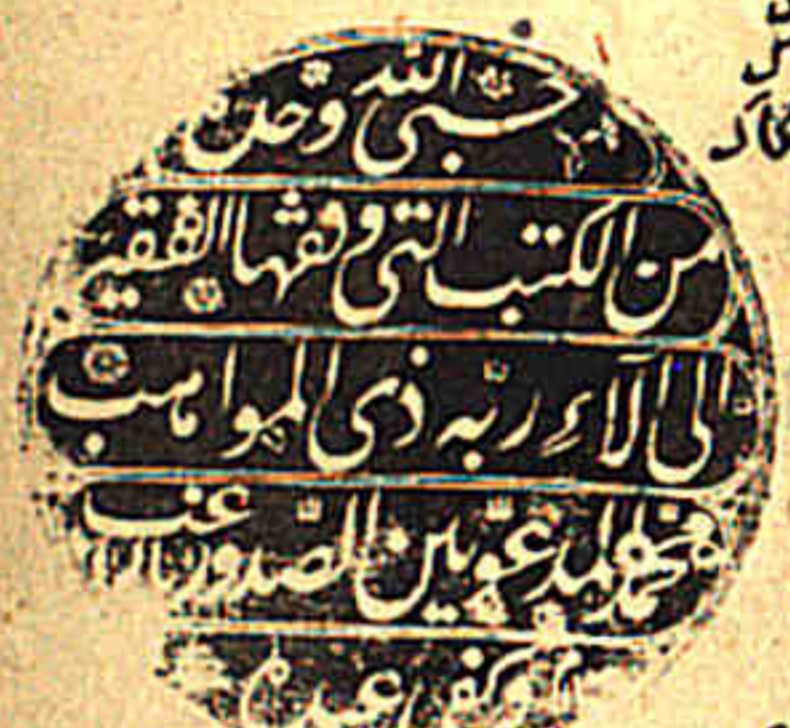 حسبى الله وحده
من الكتب التى وقفها الفقير
الى آلاء ربه ذى المواهب
محمد المدعو بين الصدور